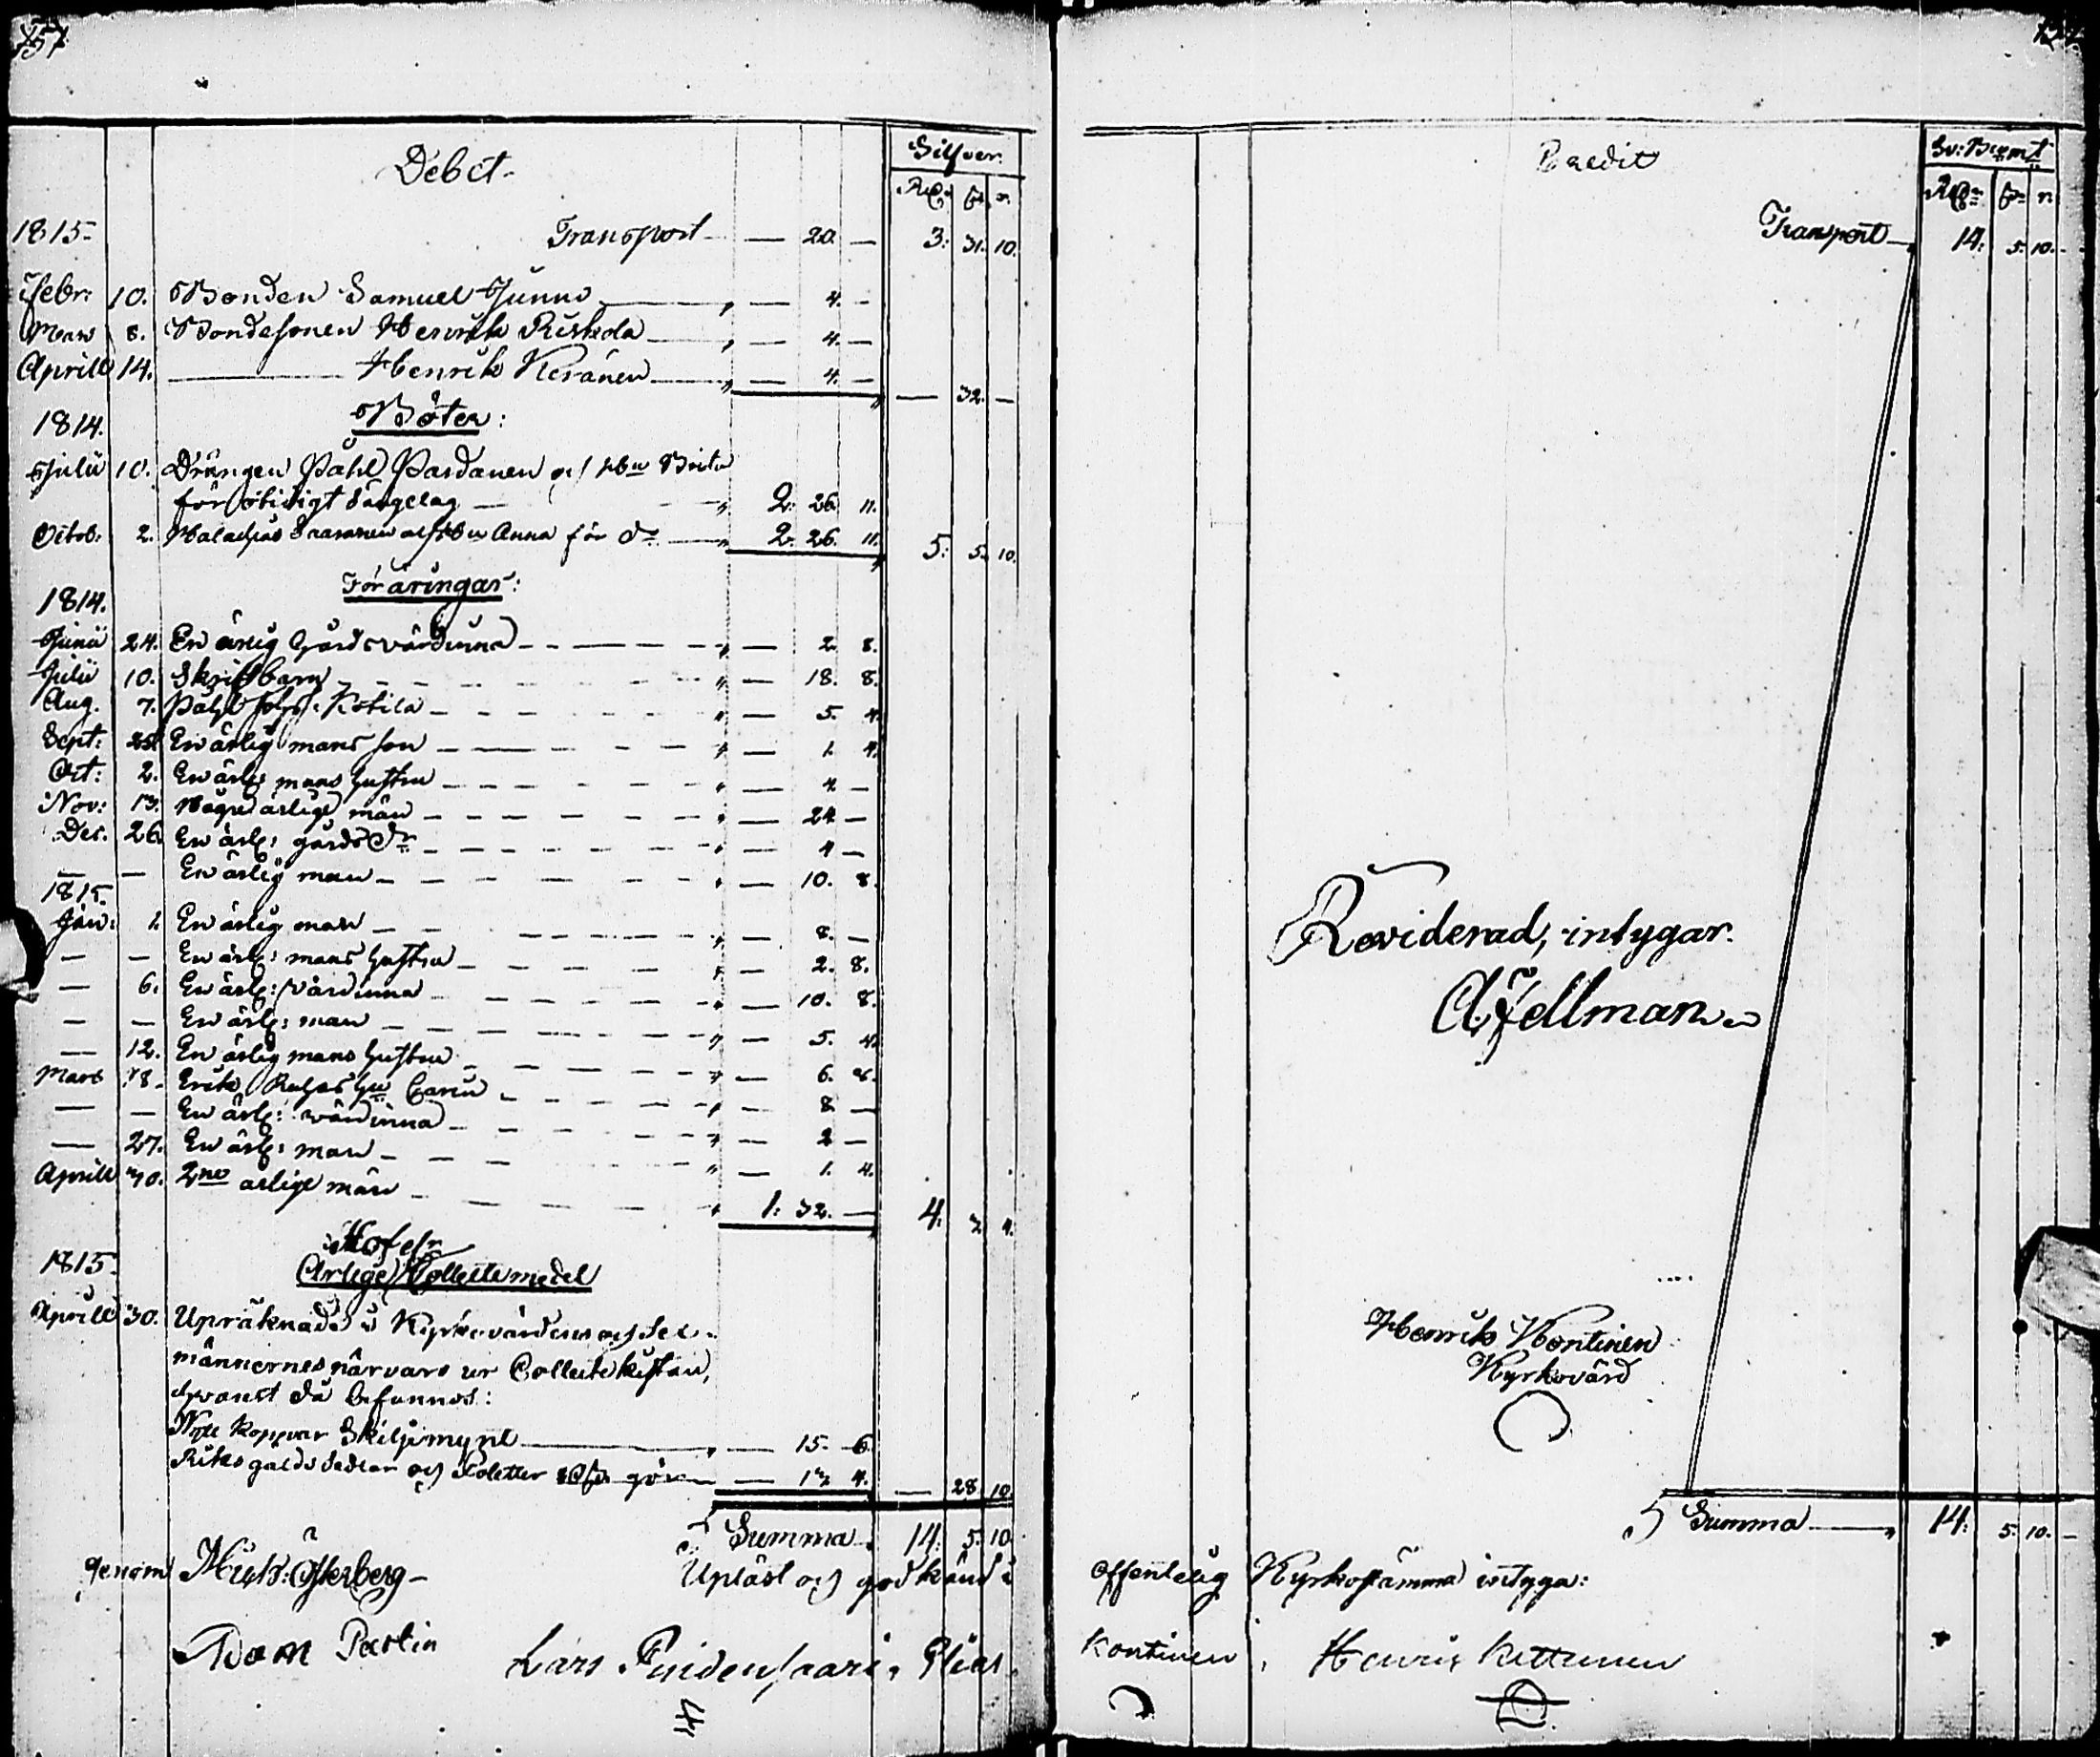 157
Debet
Silfver
Rd. s. r.
1815. Transport — 20. — 3: 31. 10.
Febr: 10. Bonden Samuel Junno — 4. —
Mars 8. Bondesonen Henrik Riskola — 4. —
Aprill 14. — Henrik Keränen — 4. — — 32. —
1814. Böter:
Julii 10. Drängen Påhl Pardanen och Brita
för otidigt Sängelag 2. 26. 11.
Octob: 2. Anna för do 2. 26. 11. 5: 5. 10.
1814. Föräringar:
Junii 24. En ärlig Gårdsvärdinna — 2. 8.
Julii 10. Skriftbarn — 18. 8.
Aug. 7. Påhl Kotila — 5. 4.
Sept: 25. En ärlig mans son — 1. 4.
Oct: 2. En ärlig mans hustru — 4. —
Nov: 13. Några ärlige män — 24. —
Dec. 26. En ärl: gårds dr — 4 —
— — En ärlig man — 10. 8.
1815.
Jan: 1. En ärlig man — 8. —
— — En ärl: mans hustru — 2. 8.
— 6. En ärl: värdinna — 10. 8.
— — En ärl: man — 5. 4.
— 12. En ärlig mans hustru — 6. 8.
Mars 18. Erik Carin — 8 —
— — En ärl: wärdinna — 2 —
— 27. En ärl: man — 1. 4.
Aprill 30. 2ne ärlige män 1: 32. — 4: 3. 4.
1815. Ärlige Collecte medel
Aprill 30. Upräknades i Kyrkovärdens och Sex-
männernes närvaro ur Collecte kistan,
hvarest då befunnos:
Nytt koppar Skiljemynt — 15. 6.
Riksgälds Sedlar och Poletter gör — 13. 4. — 28. 10.
Summa 14: 5. 10.
genom Österberg
Upläst och godkänd i
Adam Partin Lars Elias
Credit
Sv: Bcomt
Rd. s. r.
Transport 14: 5. 10.
Reviderad, intygar.
A Fellman
Henrik Kontinen
Kyrkovärd
Summa 14: 5. 10. —
offentelig Kyrkostämma intyga:
Kontinen, Henrik Kettunen